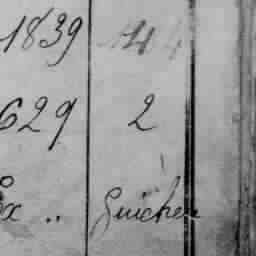 1839 144
629 2
Ex .. Guichen